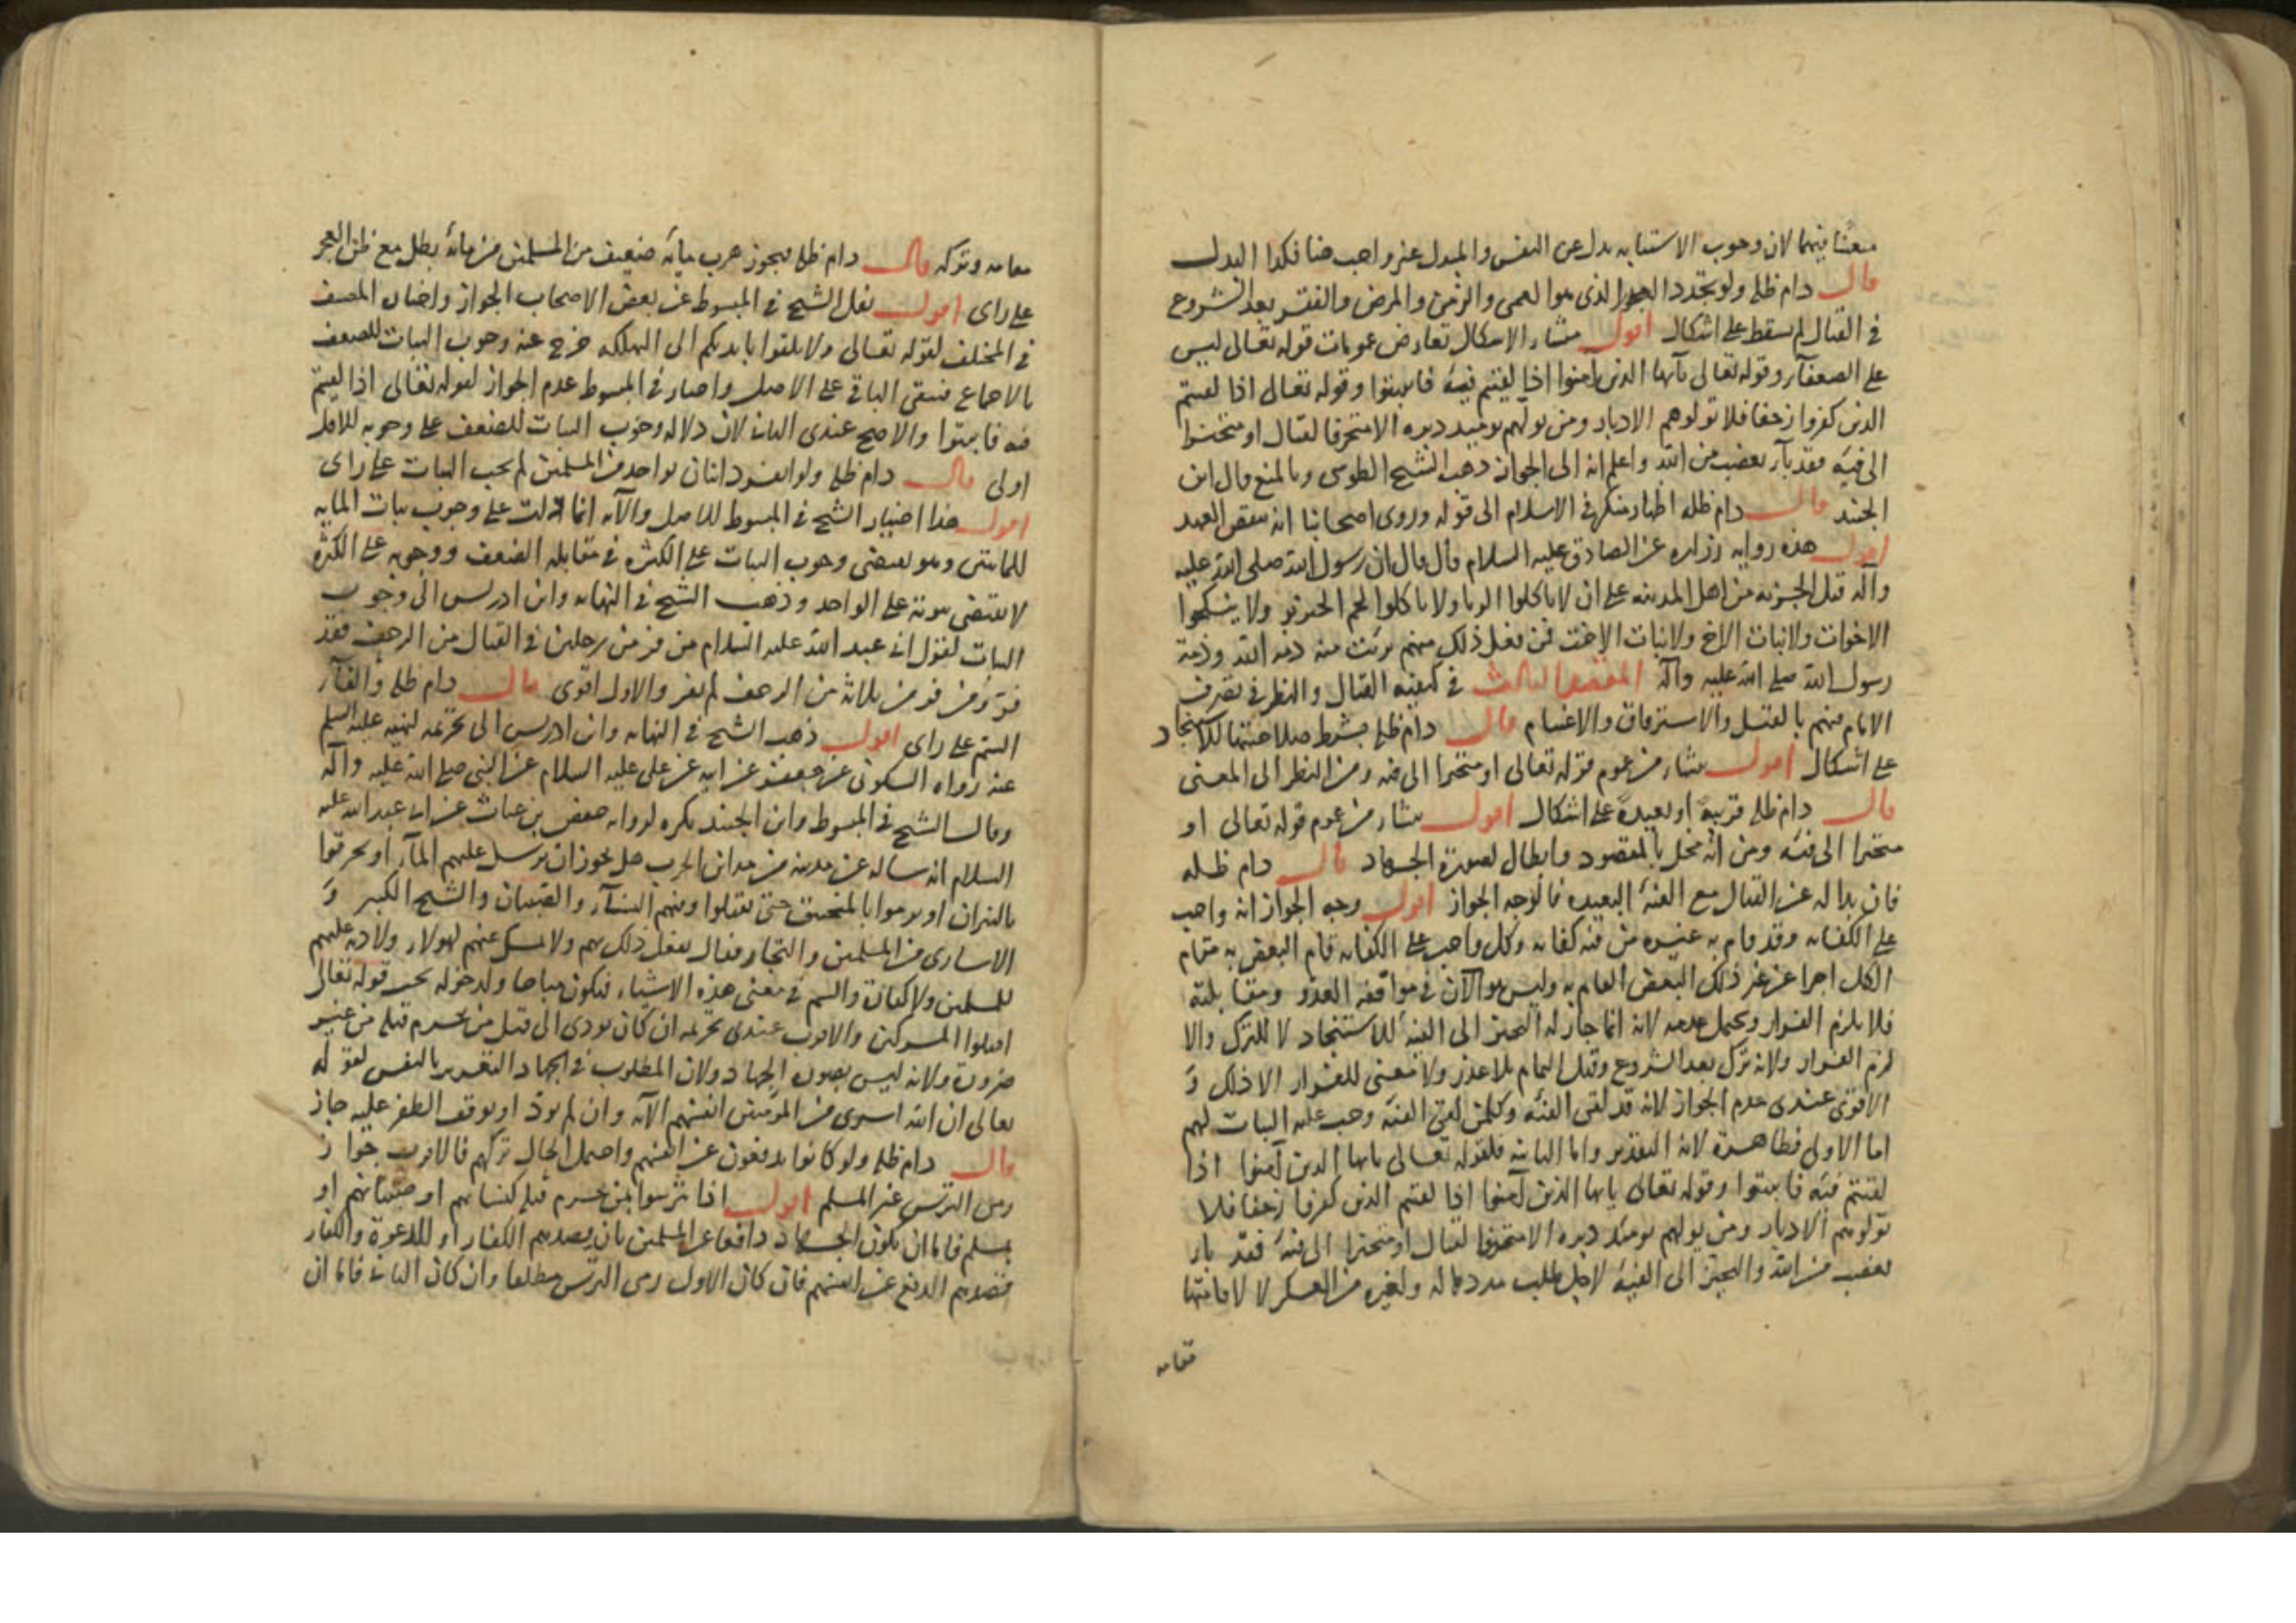 معنا فيهما لان وجوب الاستنابه بدل عن النفس والمبدل غير واجب هنا فكذا البدل
قال دام ظله ولو تجدد العذر الذى هو العمى والزمن والمرض والفقر بعد الشروع
فى القتال لم يسقط على اشكال اقول منشاء الاشكال تعارض عمومات قوله تعالى ليس
على الضعفآء وقوله تعالى يآيها الذين آمنوا اذا لقيتم فئة فاثبتوا وقوله تعالى اذا لقيتم
الذين كفروا زحفا فلا تولوهم الادبار ومن يولهم يومئذ دبره الا متحرفا لقتال او متحيزا
الى فئه فقد بآء بغضب من الله واعلم انه الى الجواز ذهب الشيخ الطوسى وبالمنع قال ابن
الجنيد قال دام ظله اظهار منكر فى الاسلام الى قوله وروى اصحابنا انه ينقض العهد
اقول هذه روايه زراره عن الصادق عليه السلام قال قال ان رسول الله صلى الله عليه
وآله قبل الجزيه من اهل المدينه على ان لا ياكلوا الربا ولا ياكلوا لحم الخنزير ولا ينكحوا
الاخوات ولا بنات الاخ ولا بنات الاخت فمن فعل ذلك منهم برئت منه ذمه الله وذمة
رسول الله صلى الله عليه وآله المقصد الثالث فى كيفيه القتال والنظر فى تصرف
الامام فيهم بالقتل والاسترقاق والاغتنام قال دام ظله بشرط صلاحيتها للاستنجاد
على اشكال اقول منشاء من عموم قوله تعالى او متحيزا الى فئه ومن النظر الى المعنى
قال دام ظله قريبة او بعيدة على اشكال اقول منشاء من عموم قوله تعالى او
متحيزا الى فئه ومن انه مخل بالمقصود وابطال لصورة الجهاد قال دام ظله
فان بدا له عن القتال مع الفئة البعيده فالوجه الجواز اقول وجه الجواز انه واجب
على الكفايه وقد قام به غيره من فيه كفايه وكل واجب على الكفايه قام البعض به مقام
الكل اجزا عن غير ذلك البعض القايم به وليس هو الآن فى مواقفه العدو ومقابلته
فلا يلزم الفرار ويحتمل عدمه لانه انما جاز له التحيز الى الفئة للاستنجاد لا للترك والا
لزم الفرار ولانه ترك بعد الشروع وقبل التمام بلا عذر ولا معنى للفرار الا ذلك و
الاقوى عندى عدم الجواز لانه قد لقى الفئه وكل من لقى الفئه وجب عليه الثبات لهم
اما الاولى فظاهرة لانه التقدير واما الثانيه فلقوله تعالى يايها الذين آمنوا اذا
لقيتم فئه فاثبتوا وقوله تعالى يايها الذين آمنوا اذا لقيتم الذين كفروا زحفا فلا
تولوهم الادبار ومن يولهم يومئذ دبره الا متحرفا لقتال او متحيزا الى فئة فقد باء
بغضب من الله والتحيز الى الفئه لاجل طلب مدد له ولغيره من العسكر لا لاقامتها
مقامه
مقامه وتركه قال دام ظله فيجوز هرب مائة ضعيف من المسلمين من مائة بطل مع ظن العجز
على راى اقول نقل الشيخ فى المبسوط عن بعض الاصحاب الجواز واختاره المصنف
فى المختلف لقوله تعالى ولا تلقوا بايديكم الى التهلكه خرج عنه وجوب الثبات للضعف
بالاجماع فيبقى الباقى على الاصل واختار فى المبسوط عدم الجواز لقوله تعالى اذا لقيتم
فئه فاثبتوا والاصح عندى الثانى لان دلاله وجوب الثبات للضعف على وجوبه للاقل
اولى قال دام ظله ولو انفرد اثنان بواحد من المسلمين لم يجب الثبات على راى
اقول هذا اختيار الشيخ فى المبسوط للاصل والآيه انما دلت على وجوب ثبات المايه
للمايتين وهو يقتضى وجوب الثبات على الكثره فى مقابله الضعف ووجوبه على الكثره
لا يقتضى ثبوته على الواحد وذهب الشيخ فى النهايه وابن ادريس الى وجوب
الثبات لقول ابى عبد الله عليه السلام من فر من رجلين فى القتال من الزحف فقد
فر ومن فر من ثلاثة من الزحف لم يفر والاول اقوى قال دام ظله والقآء
السم على راى اقول ذهب الشيخ فى النهايه وابن ادريس الى تحريمه لنهيه عليه السلم
عنه رواه السكونى عن جعفر عن ابيه عن على عليه السلام عن النبى صلى الله عليه وآله
وقال الشيخ فى المبسوط وابن الجنيد يكره لروايه حفص بن غياث عن ابى عبد الله عليه
السلام انه ساله عن مدينه من مداين الحرب هل يجوز ان يرسل عليهم المآء او يحرقوا
بالنيران او يرموا بالمنجنيق حتى يقتلوا وفيهم النسآء والصبيان والشيخ الكبير و
الاسارى من المسلمين والتجار فقال يفعل ذلك بهم ولا يمسك عنهم لهولاء ولا ديه عليهم
للمسلمين ولا كفارة والسم فى معنى هذه الاشياء فيكون مباحا ولدخوله تحت قوله تعالى
اقتلوا المشركين والاقرب عندى تحريمه ان كان يودى الى قتل من يحرم قتله من غير
ضرورة ولانه ليس بصورة الجهاد ولان المطلوب فى الجهاد التغرير بالنفس لقوله
تعالى ان الله اشترى من المؤمنين انفسهم الآيه وان لم يود او توقف الظفر عليه جاز
قال دام ظله ولو كانوا يدفعون عن انفسهم واحتمل الحال تركهم فالاقرب جواز
رمى الترس غير المسلم اقول اذا تترسوا بمن يحرم قتله كنسائهم او صبيانهم او
بمسلم فاما ان يكون الجهاد دافعا عن المسلمين بان يصدهم الكفار او للدعوة والكفار
قصدهم الدفع عن انفسهم فان كان الاول رمى الترس مطلقا وان كان الثانى فاما ان